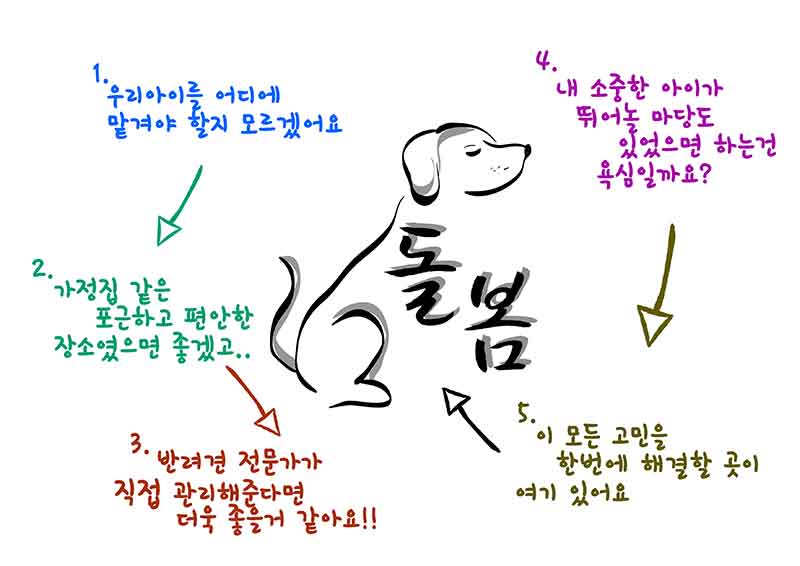 1.
우리아이를 어디에
맡겨야 할지 모르겠어요
2.
가정집 같은
포근하고 편안한
장소였으면 좋겠고..
3.
반려견 전문가가
직접 관리해준다면
더욱 좋을거 같아요!!
4.
내 소중한 아이가
뛰어놀 마당도
있었으면 하는건
욕심일까요?
5.
이 모든 고민을
한번에 해결할 곳이
여기 있어요
돌봄